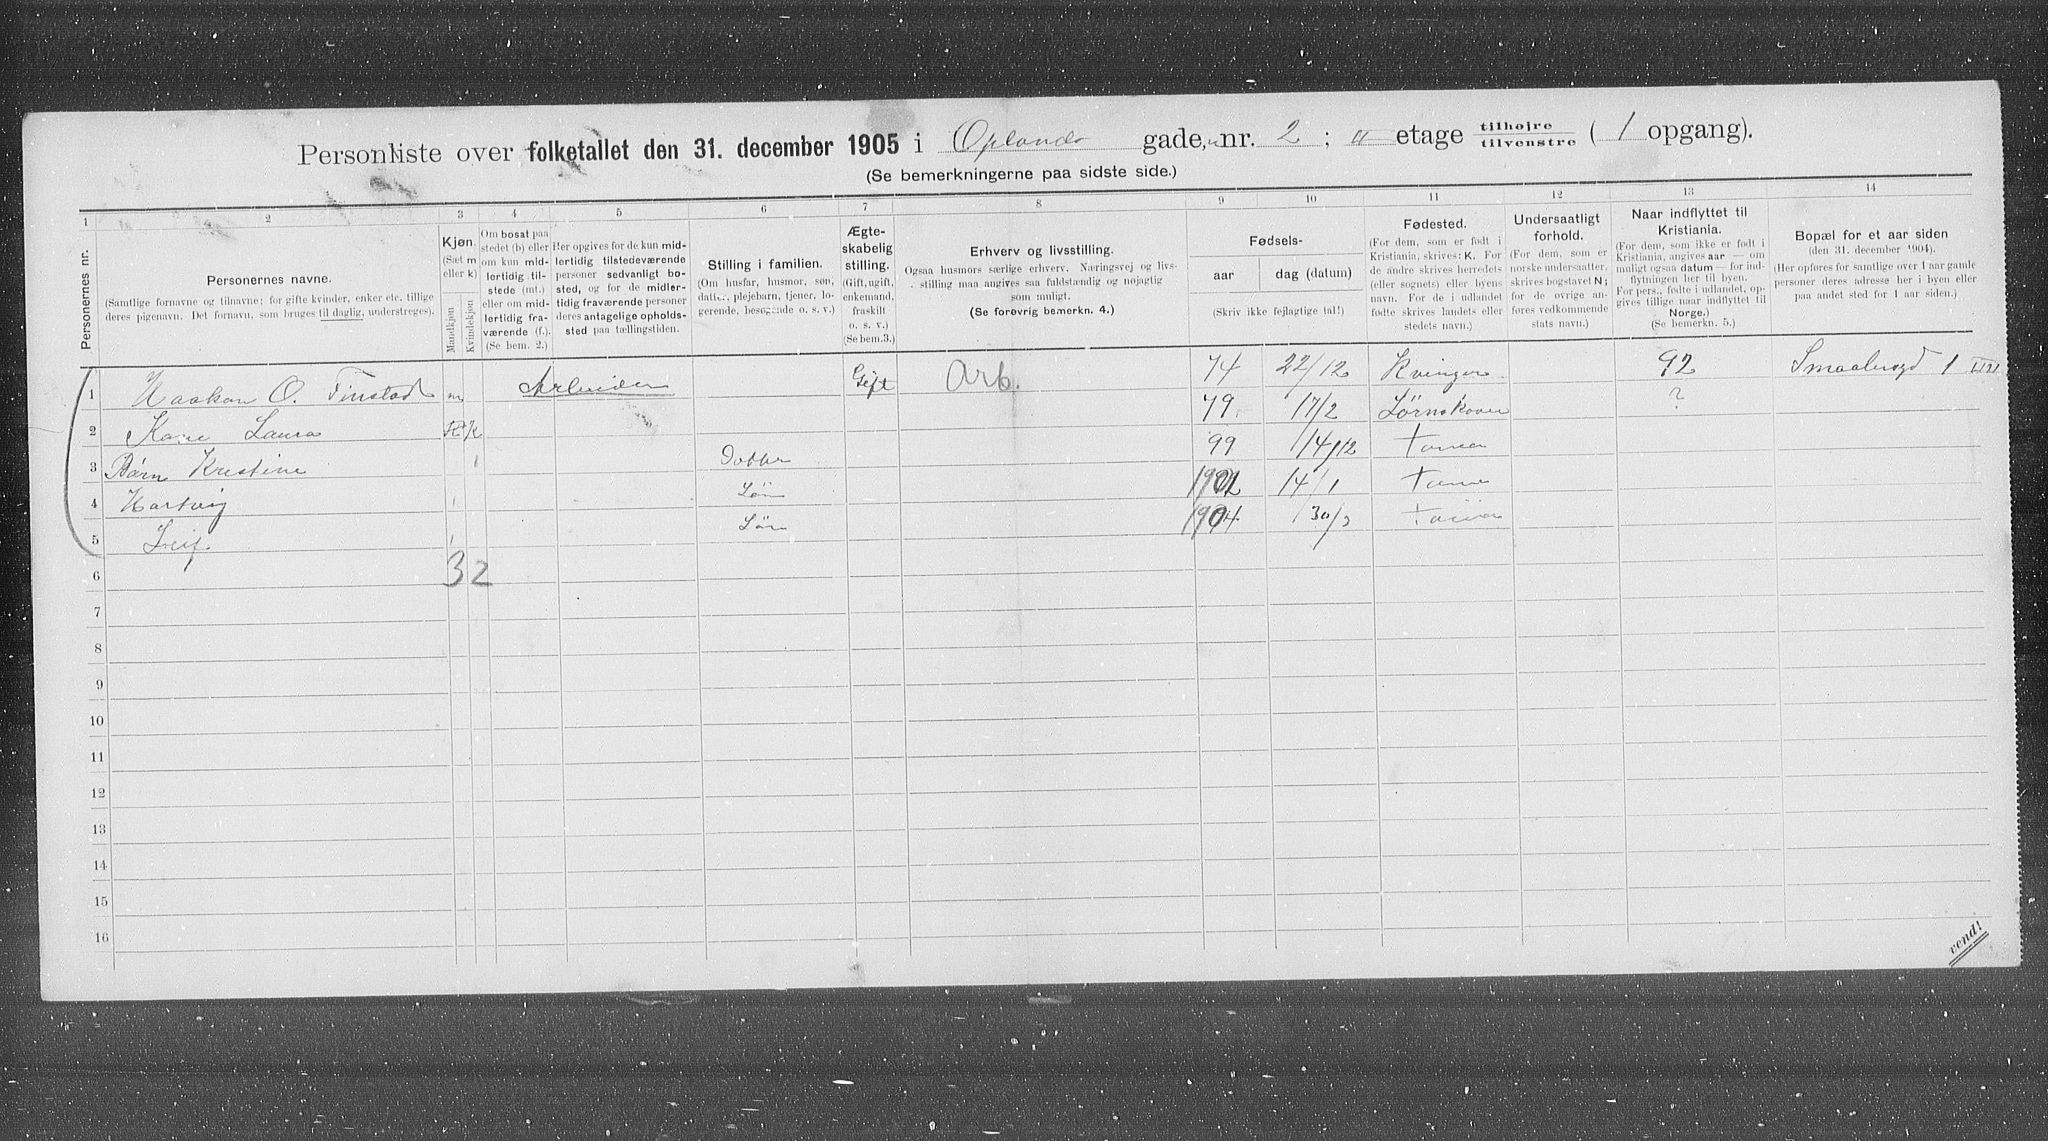 Personliste over folketallet den 31. december 1905 i Oplands gade, nr. 2; " etage tilhøjre / tilvenstre (1 opgang).
(Se bemerkningerne paa sidste side.)
1 2 3 4 5 6 7 8 9 10 11 12 13 14
Personernes nr.
Personernes navne.
(Samtlige fornavne og tilnavne; for gifte kvinder, enker etc. tillige deres pigenavn. Det fornavn, som bruges til daglig, understreges).
Kjøn.
(Sæt m eller k)
Mandkjøn
Kvindekjøn
Om bosat paa stedet (b) eller om kun midlertidig tilstede (mt.) eller om midlertidig fraværende (f.). (Se bem. 2.)
Her opgives for de kun midlertidig tilstedeværende personer sedvanligt bosted, og for de midlertidig fraværende personer deres antagelige opholdssted paa tællingstiden.
Stilling i familien.
(Om husfar, husmor, søn, datter, plejebarn, tjener, logerende, besøgende o. s. v.)
Ægteskabelig stilling.
(Gift, ugift, enkemand, fraskilt o. s. v.)
(Se bem.3.)
Erhverv og livsstilling.
Ogsaa husmors særlige erhverv. Næringsvej og livsstilling maa angives saa fuldstændig og nøjagtig som muligt.
(Se forøvrig bemerkn. 4.)
Fødsels-
aar
dag (datum)
(Skriv ikke fejlagtige tal!)
Fødested.
(For dem, som er født i Kristiania, skrives: K. For de andre skrives herredets (eller sognets) eller byens navn. For de i udlandet fødte skrives landets eller stedets navn.)
Undersaatligt forhold.
(For dem, som er norske undersaatter, skrives bogstavet N; for de øvrige anføres vedkommende stats navn.)
Naar indflyttet til Kristiania.
(For dem, som ikke er født i Kristiania, angives aar — om muligt ogsaa datum — for indflytningen her til byen. For pers., fødte i udlandet, opgives tillige naar indflyttet til Norge.)
(Se bemerkn. 5.)
Bopæl for et aar siden
(den 31. december 1904).
(Her opføres for samtlige over 1 aar gamle personer deres adresse her i byen eller paa andet sted for 1 aar siden.)
1 Haakon O. Finstad m Arbeider Gift Arb. 74 22/12 Kvinger 92 Smaabergd 1
2 Kare Laura K 79 17/2 Lørnskoven ?
3 Børn Kristine 1 Dotter 99 14/12
4 Hartvig 1 Søn 1902 14/1
5 Leif 1 Søn 1904 30/3
6 3 2
7
8
9
10
11
12
13
14
15
16
vend!